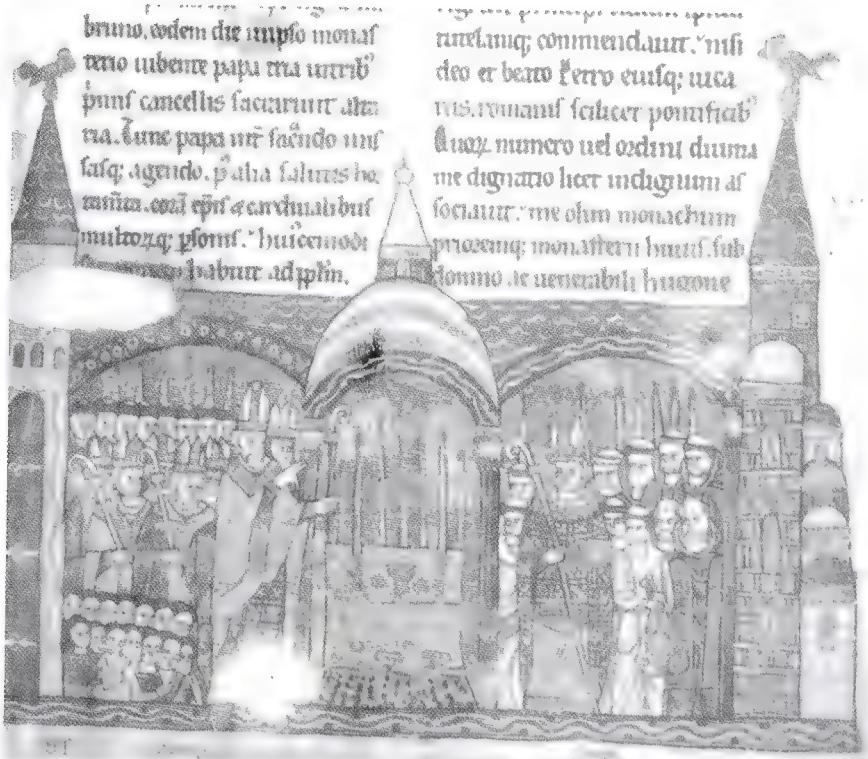 bruno. eodem die in ipso monas
terio iubente papa tria in trib'
pmis cancellis sacrarunt alta
ria. Tunc papa int sacndo mis
sasq; agendo. p alia salutis ho
tam̄ta. corā ep̄is & cardinalibus
multorq; psonis. huicemodi
habuit ad pplm.
tutelamq; commendauit. nisi
deo et beato Petro eiusq; uica
riis. romanis scilicet pontificib'
Quoꝝ numero uel ordini diuina
me dignatio licet indignum as
sociauit. me olim monachum
prioremq; monasterii huius. sub
domno ac uenerabili hugone